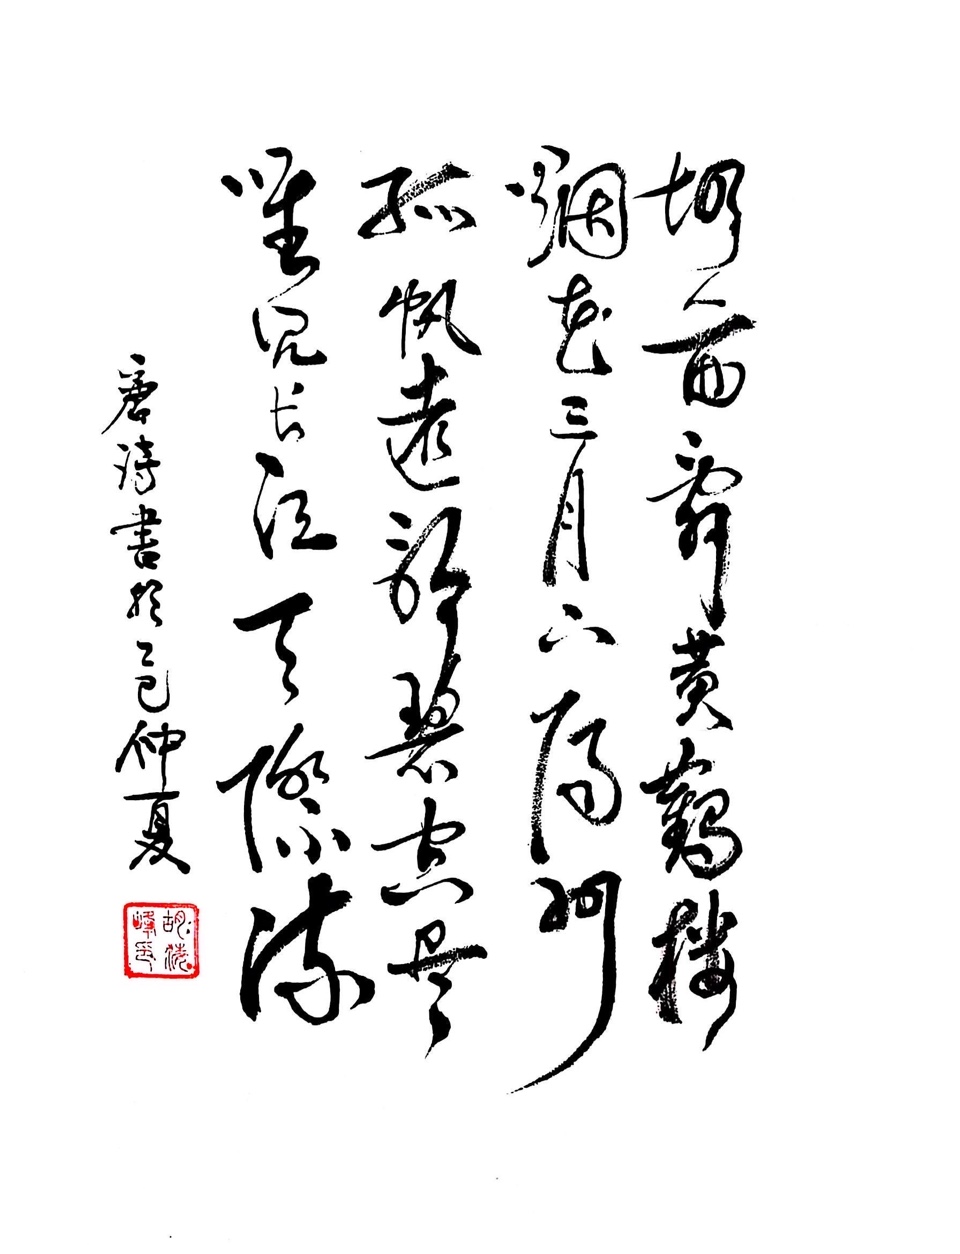 故人西辞黄鹤楼
烟花三月下扬州
孤帆远影碧空尽
唯见长江天际流
唐诗书於乙巳仲夏